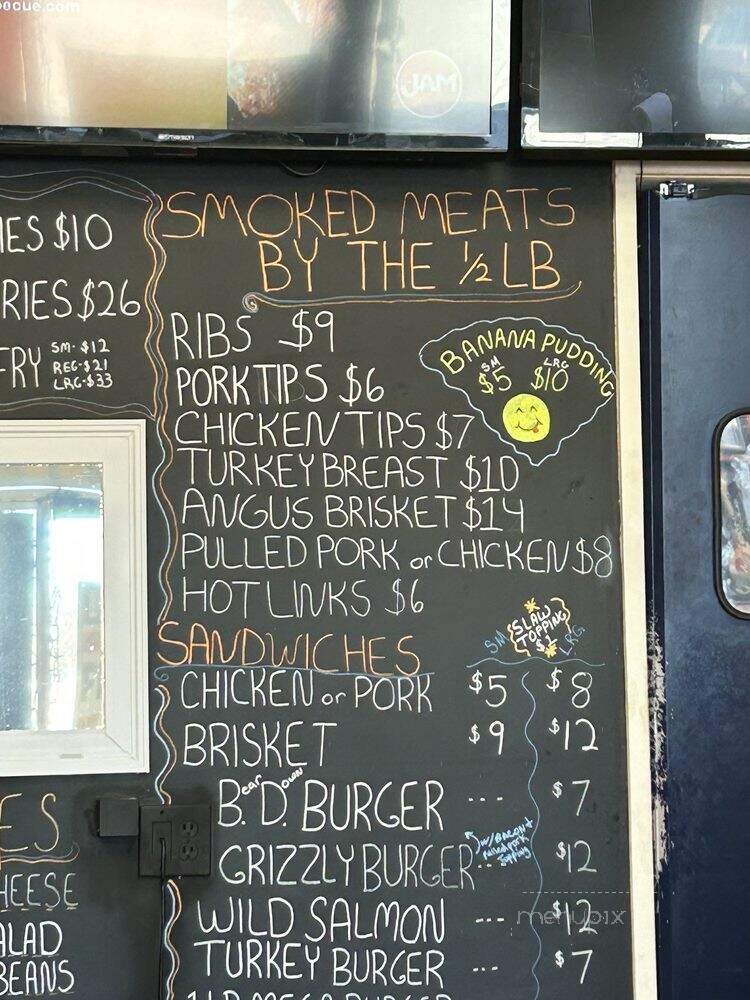 becue.com
JAM
IES $10
RIES $26
FRY SM-$12
REG-$21
LRG-$33
SMOKED MEATS
BY THE ½ LB
RIBS $9
PORK TIPS $6
CHICKEN TIPS $7
TURKEY BREAST $10
ANGUS BRISKET $14
PULLED PORK or CHICKEN $8
HOT LINKS $6
BANANA PUDDING
SM LRG
$5 $10
SANDWICHES
SLAW
TOPPING
$1
SM LRG
CHICKEN or PORK $5 $8
BRISKET $9 $12
Bear Down BURGER --- $7
GRIZZLY BURGER -- $12
w/ BACON +
Pulled pork
topping
WILD SALMON --- $12
TURKEY BURGER --- $7
1 LB MEGA BURGER
ES
HEESE
ALAD
BEANS
menupix